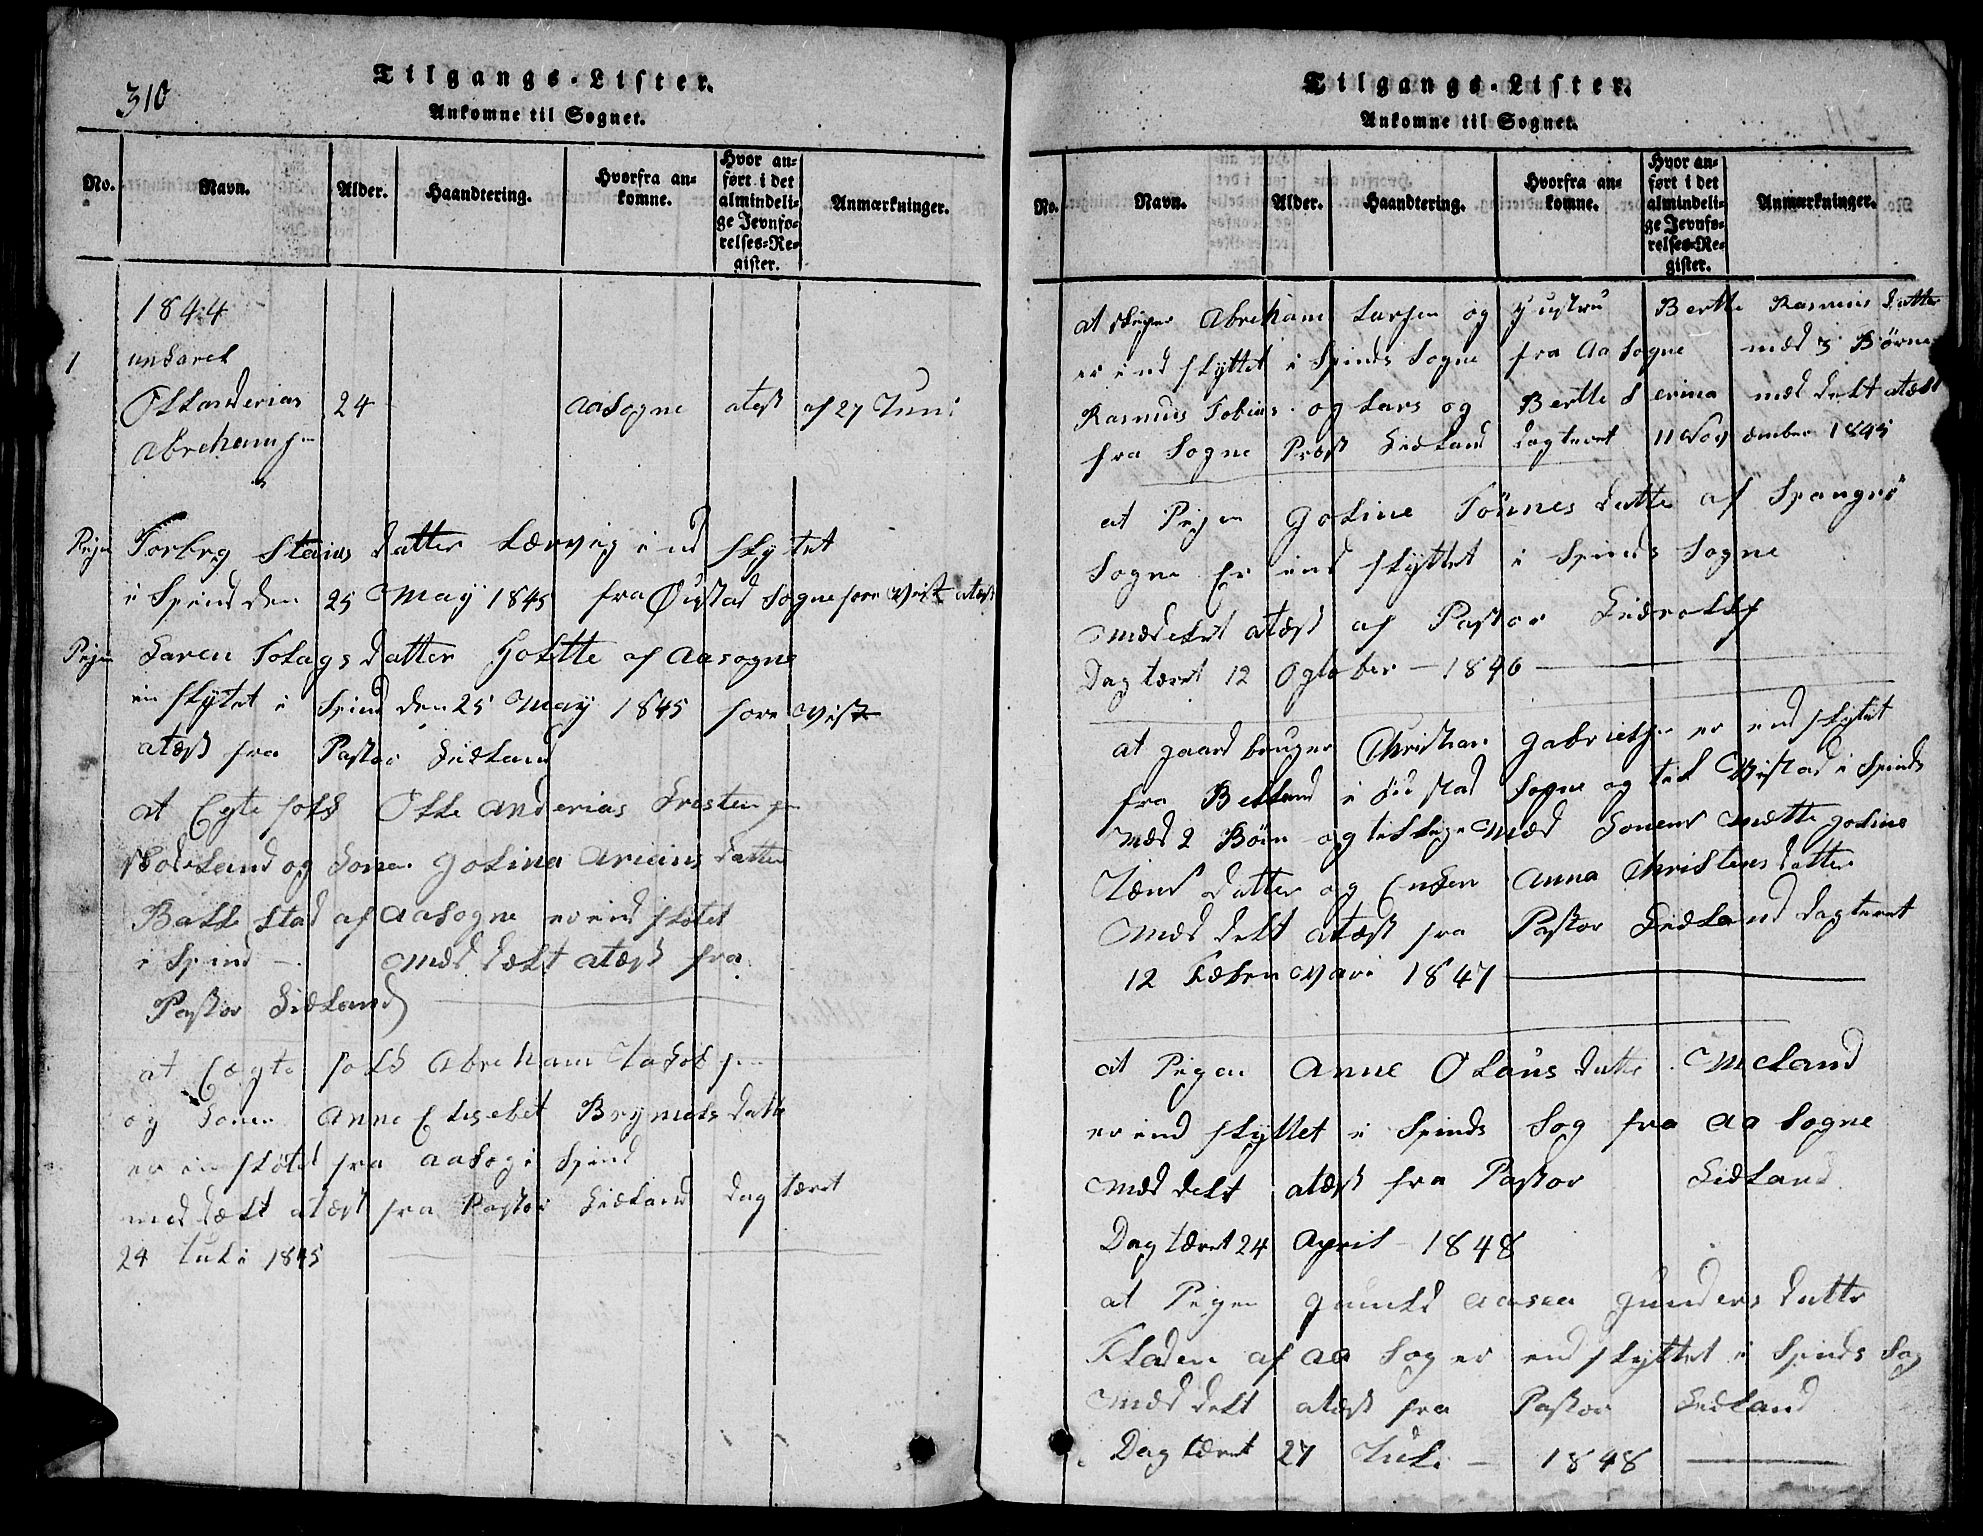 310
Tilgangs-Lister.
Ankomne til Sognet.
No.
Navn.
Alder.
Haandtering.
Hvorfra an-
komne.
Hvor an-
ført i det
almindeli-
ge Jevnfø-
relses-Re-
gister.
Anmærkninger.
1844
1 unkarel
Ollanderias 24 aasogne atest af 27 Juni
Abrehamsen
Pigen Torbrg Stains datter Lervig ind flytet
i Spind den 25 May 1845 fra Øustad Sogne fore vist atæst
Pigen Karen Tolags datter Holtte af aasogne
in flytet i Spind den 25 May 1845 fore vist
atæst fra Pastor Lidland
at Egte folk Olle anderias Kresten sen
Rodeland og konen Goline arieins datter
Bakkstad af aasogne er ind fløtet
i Spind - med delt atæst fra
Pastor Lidland
at Ægte folk Abreham Jakob sen
og konen Anne Elisebet Brynels datter
er in fløtet fra aasog i Spind
med dælt atæst fra Pastor Lidland dagtæret
24 Juli 1845
Tilgangs-Lister.
Ankomne til Sognet.
No.
Navn.
Alder.
Haandtering.
Hvorfra an-
komne.
Hvor an-
ført i det
almindeli-
ge Jevnfø-
relses-Re-
gister.
Anmærkninger.
at Abreham Larsen og Hustru Berthe Rasmus datter
er ind flyttet i Spinds Sogne fra Aa Sogne med 3 Børne
Rasmus Tobias og Lars og Berthe Serina med delt atæst
fra Sogne Præst Lidland dagteret 11 November 1845
at Pigen Goline Tönnes datter af Spangrei
Sogne Er ind flyttet i Spinds Sogne
meddelt atæst af Pastor
Dagtæret 12 Ogtober - 1846
at gaardbruger Christian Gabrielsen er ind flytet
fra Belland i Sogne og tel Vistad i Spinds
med 2 Börn og tillige med Konens Mette goline
datter og Enken Anna Christens datter
med delt atæst fra Pastor Lidland dagteret
12 Febru vari 1847
at Pigen Anne Olaus datter Meland
er ind flyttet i Spinds Sog fra aa Sogne
med delt atæst fra Pastor Lidland
Dagtæret 24 April - 1848
at Pigen Gunild aasea Gunders datter
Fladen af aa Sog er ind flyttet i Spinds Sog
med delt atæst fra Pastor Lidland
Dagtæret 27 Juli - 1848